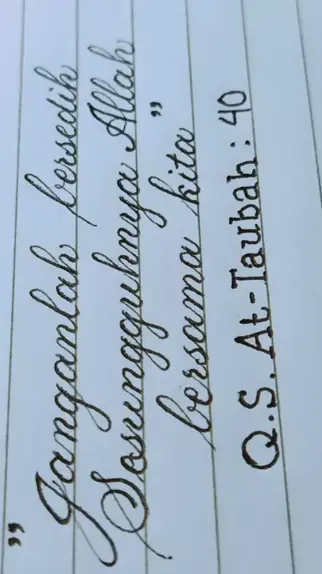 "Janganlah bersedih
Sesungguhnya Allah
bersama kita"
Q.S. At-Taubah: 40